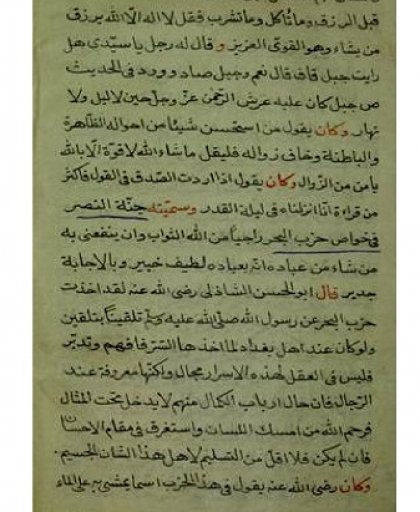 قبل الرزق وما تأكل وما تشرب فقل لا اله الّا الله يرزق
من يشاء وهو القوىّ العزيز وقال له رجل يا سيّدى هل
رايت جبل قاف قال نعم وجبل صاد وورد فى الحديث
ص جبل كان عليه عرش الرّحمن عزّ وجلّ حين لا ليل ولا
نهار وكان يقول من استحسن شيئا من احواله الظاهرة
والباطنة وخاف زواله فليقل ما شاء الله لا قوّة الّا بالله
يأمن من الزوال وكان يقول اذا اردت الصّدق فى القول فاكثر
من قراءة انّا انزلناه فى ليلة القدر وسمّيته جنّة النصر
فى خواص حزب البحر راجيا من الله الثواب وان ينفعنى به
من شاء من عباده انّه بعباده لطيف خبير وبالاجابة
جدير قال ابو الحسن الشاذلى رضى الله عنه لقد اخذت
حزب البحر عن رسول الله صلّى الله عليه وسلّم تلقينا بتلقين
ولو كان عند اهل بغداد لما اخذها التتر فافهم وتدبّر
فليس فى العقل لهذه الاسرار مجال ولكنّها معروفة عند
الرّجال فان حال ارباب الكمال منهم لا يدخل تحت المثال
فرحم الله من امسك اللسان واستغرق فى مقام الاحسان
فان لم يكن فلا اقلّ من التسليم لاهل هذا الشان الجسيم
وكان رضى الله عنه يقول فى هذا الحزب اسما يمشى به على الماء